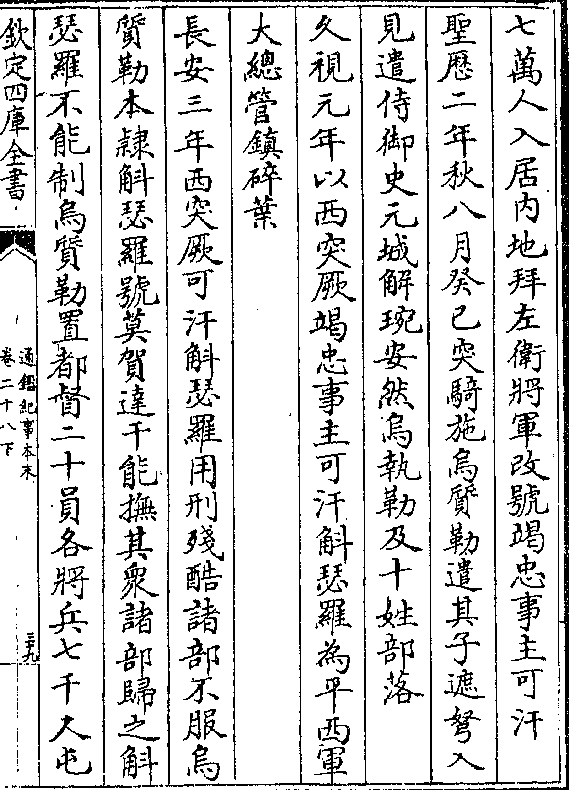 七萬人入居内地拜左衛將軍改號竭忠事主可汗
聖歴二年秋八月癸巳突騎施烏質勒遣其子遮弩入
見遣侍御史元城解琬安然烏執勒及十姓部落
久視元年以西突厥竭忠事主可汗斛瑟羅為平西軍
大總管鎮碎葉
長安三年西突厥可汗斛瑟羅用刑殘酷諸部不服烏
質勒本隷斛瑟羅號莫賀達干能撫其衆諸部歸之斛
瑟羅不能制烏質勒置都督二十員各將兵七千人屯
欽定四庫全書
通鑑紀事本末
卷二十八下
三九